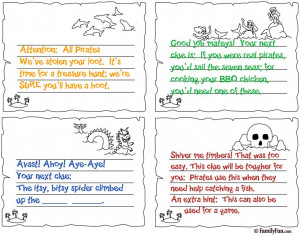 Attention: All Pirates
We've stolen your loot. It's
time for a treasure hunt; we're
SURE you'll have a hoot.
Good job mateys! Your next
clue is: If you were real pirates,
you'd sail the seven seas; for
cooking your BBQ chicken,
you'd need one of these.
Avast! Ahoy! Aye-Aye!
Your next clue:
The itsy, bitsy spider climbed
up the _____ _____.
Shiver me timbers! That was too
easy. This clue will be tougher for
you: Pirates use this when they
need help catching a fish.
An extra hint: This can also be
used for a game.
© FamilyFun.com